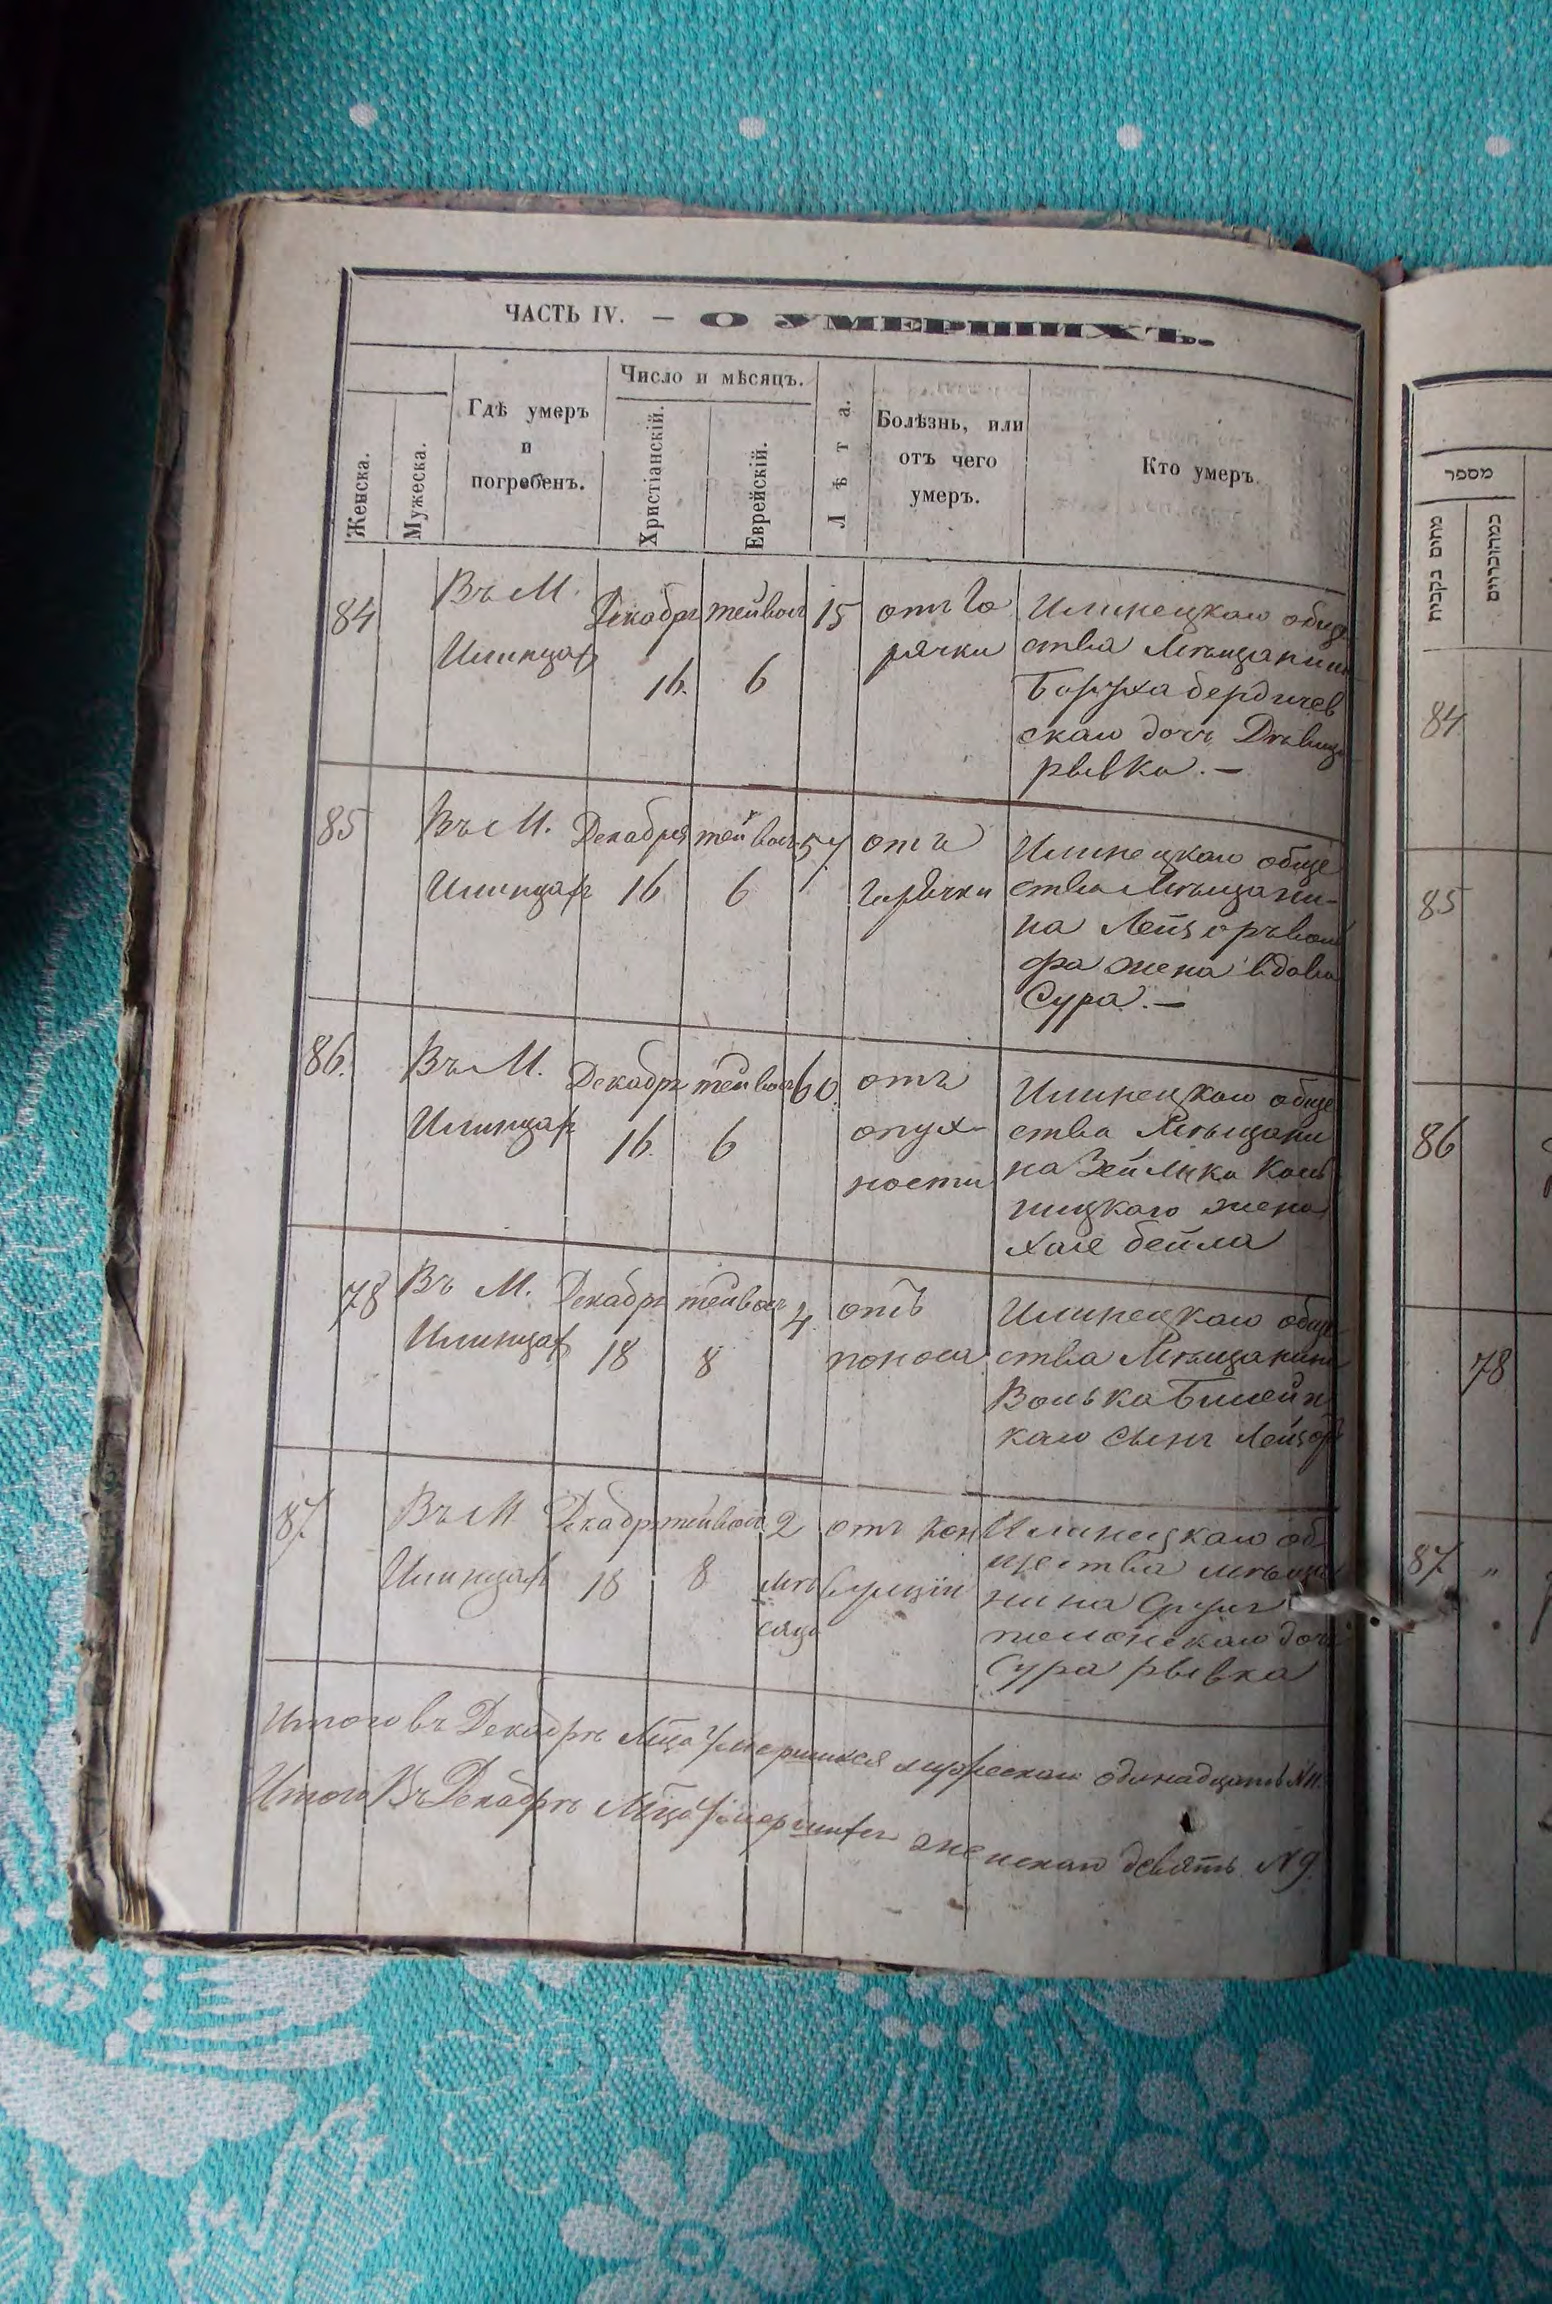 ЧАСТЬ IV. — О УМЕРШИХЪ.
Женска.
Мужеска.
Гдѣ умеръ
и
погребенъ.
Число и мѣсяцъ.
Христіанскій.
Еврейскій.
Лѣта.
Болѣзнь, или
отъ чего
умеръ.
Кто умеръ.
84
Въ М.
Илинцахъ
Декабря
16.
тейвосъ
6
15
отъ го
рячки
Илинецкаго обще
ства Мѣщанина
Боруха бердичев
скаго дочь Дѣвица
рывка. —
85
Въ М.
Илинцахъ
Декабря
16
тейвосъ
6
57
отъ
горячки
Илинецкаго обще
ства Мѣщани-
на
фа жена вдова
Сура. —
86.
Въ М.
Илинцахъ
Декабря
16.
тейвосъ
6
60
отъ
опух-
ности
Илинецкаго обще
ства Мѣщани
на Зейлика
жена
хае бейла
78
Въ М.
Илинцахъ
Декабря
18
тейвосъ
8
4
отъ
поноса
Илинецкаго обще
ства Мѣщанина
Волька
каго сынъ Лейзоръ
87.
Въ М
Илинцахъ
Декабря
18
тейвосъ
8
2
мѣ
сяца
отъ кон
вулціи
Илинецкаго об
щества мѣщан
нина Сруля
дочь
Сура рывка
Итого въ Декабрѣ Мца Умершихся мужескаго одинадцать №11.
Итого Въ Декабрѣ Мца Умершихъ женскаго девять №9.
מספר
84
85
86
78
87.
"